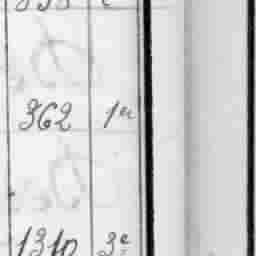 362 1er
1310 3e